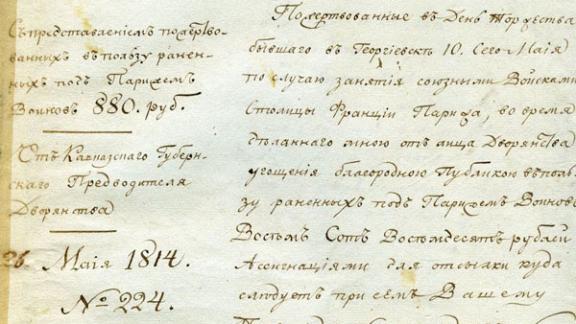 Съ представленіемъ пожертво-
ванныхъ въ пользу ранен-
ныхъ подъ Парижемъ
Воиновъ 880. руб.
Отъ Кавказскаго Губерн-
скаго Предводителя
Дворянства
26. Маія 1814.
№ 224.
Пожертвованные въ День торжества
бывшаго въ Георгіевскѣ 10. сего Маія
по случаю занятія союзными Войсками
Столицы Франціи Парижа, во время
сдѣланнаго мною отъ лица Дворянства
угощенія благородною Публикою въ поль-
зу раненныхъ подъ Парижемъ Воиновъ
Восемь Сотъ Восемдесятъ рублей
Асигнаціями для отсылки куда
слѣдуетъ при семъ Вашему